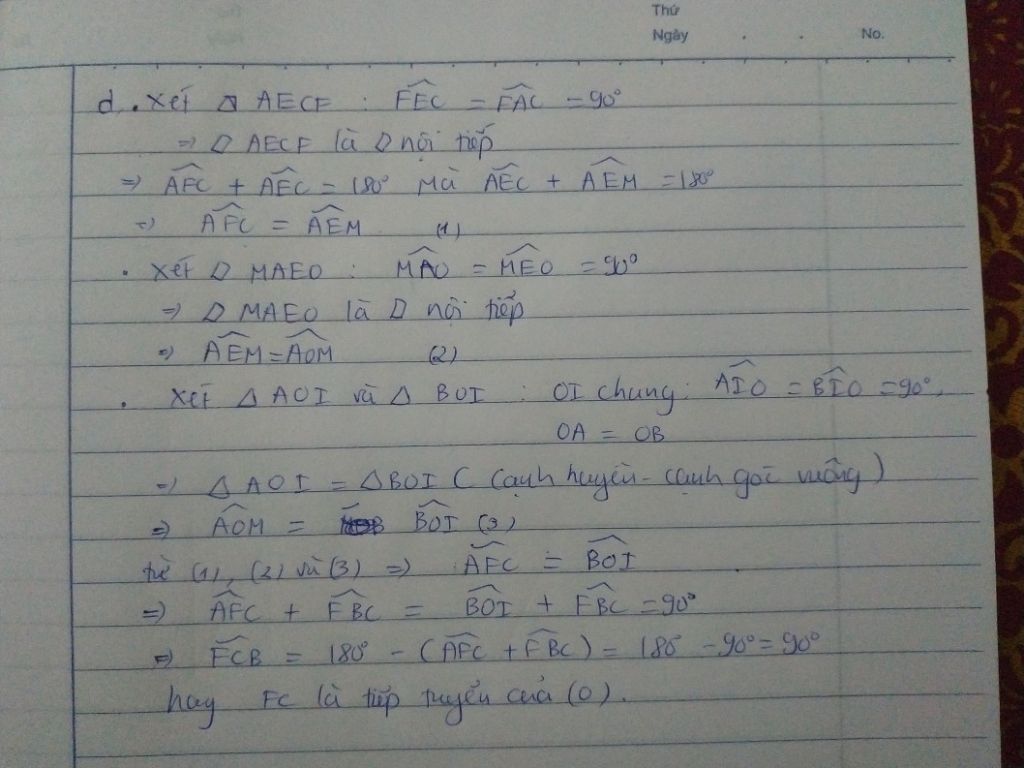 Thứ
Ngày . . No.
d. Xét ▱ AECF : FEC = FAC = 90°
=> ▱ AECF là ▱ nội tiếp
=> AFC + AEC = 180° Mà AEC + AEM = 180°
=> AFC = AEM (1)
. Xét ▱ MAEO : MAO = MEO = 90°
=> ▱ MAEO là ▱ nội tiếp
=> AEM = AOM (2)
. Xét △ AOI và △ BOI : OI chung; AIO = BIO = 90°,
OA = OB
=> △ AOI = △BOI ( cạnh huyền - cạnh góc vuông )
=> AOM = BOI (3)
từ (1), (2) và (3) => AFC = BOI
=> AFC + FBC = BOI + FBC = 90°
=> FCB = 180° - (AFC + FBC) = 180° - 90° = 90°
hay FC là tiếp tuyến của (O).